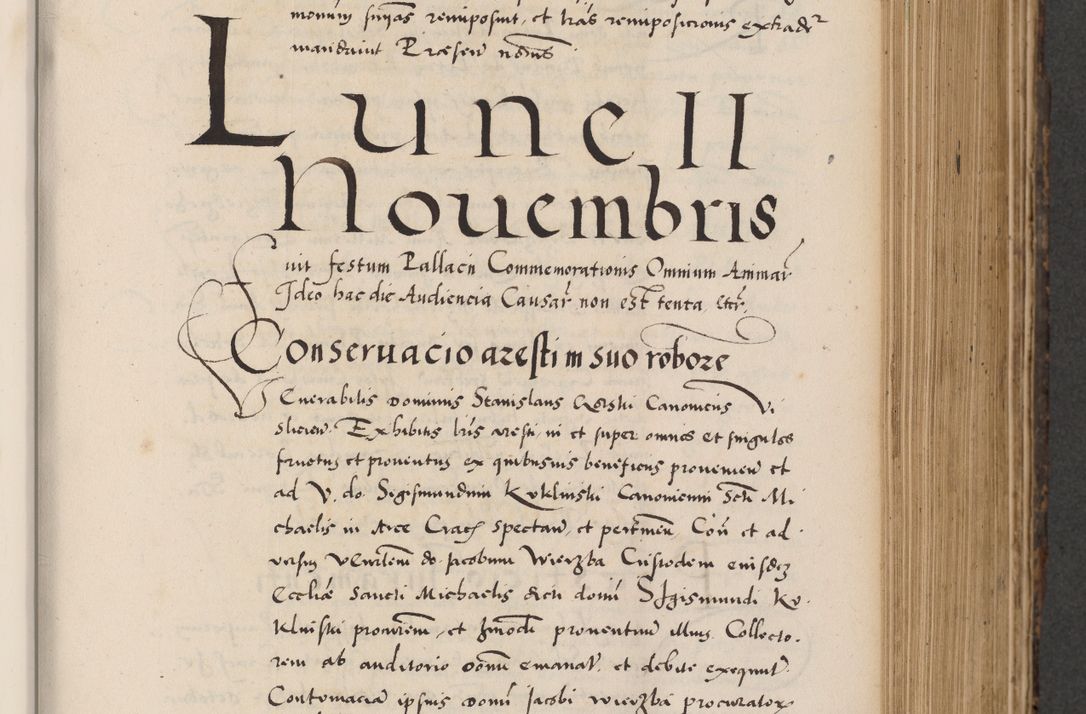 monim snias reniposuit, et lras reniposicionis extradr
mandavit Præsen ndnis
Lune II
Nouembris
Fuit festum Pallacii Commemorationis Omnium Animar
Ideo hac die Audiencia Causar non est tenta, etc.
Conseruacio aresti in suo robore
Venerabilis dominus Stanislaus Gorski Canonicus Vi
slicien. Exhibitis lris aresti, in et super omnes et singulos
fructus et prouentus ex quibusuis beneficiis prouenien et
ad V. do. Sigismundum Kuklinski Canonicum Scti Mi
chaelis in Arce Crac spectan, et pertinen, Con et ad
uersus Venrlem do. Jacobum Wierzba Custodem eiusdez
Eccliæ Sancti Michaelis dicti domi Sigismundi Ku
klinski procurem, et hmodi prouentuu illius Collecto
rem ab auditorio domi emanat. et debite exequut.
Contumacia ipsius domi Jacobi Wierzba procurator